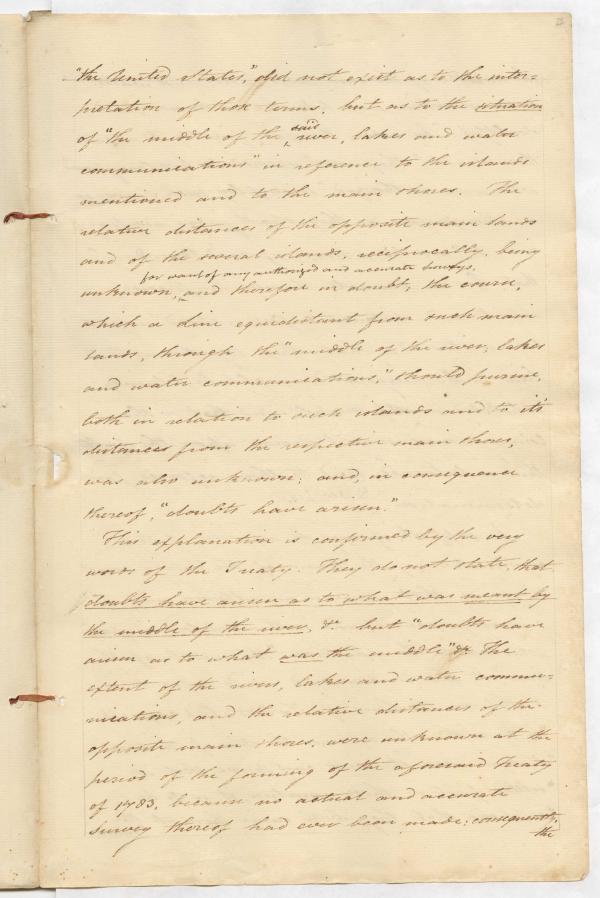 "the United States," did not exist as to the inter=
pretation of those terms, but as to the situation
of "the middle of the said river, lakes and water
communications" in reference to the islands
mentioned and to the main shores. The
relative distances of the opposite main lands
and of the several islands, reciprocally, being
for want of any authorized and accurate surveys,
unknown, and therefore in doubt, the course,
which a line equidistant from such main
lands, through the "middle of the river, lakes
and water communications," should pursue,
both in relation to such islands and to it's
distances from the respective main shores,
was also unknown; and, in consequence
thereof, "doubts have arisen."
This explanation is confirmed by the very
words of the Treaty. They do not state, that
doubts have arisen as to what was meant by
the middle of the river, &c. but "doubts have
arisen as to what was the middle" &c. The
extent of the rivers, lakes and water commu=
nications, and the relative distances of the
opposite main shores, were unknown at the
period of the forming of the aforesaid Treaty
of 1783, because no actual and accurate
survey thereof had ever been made; consequently,
the